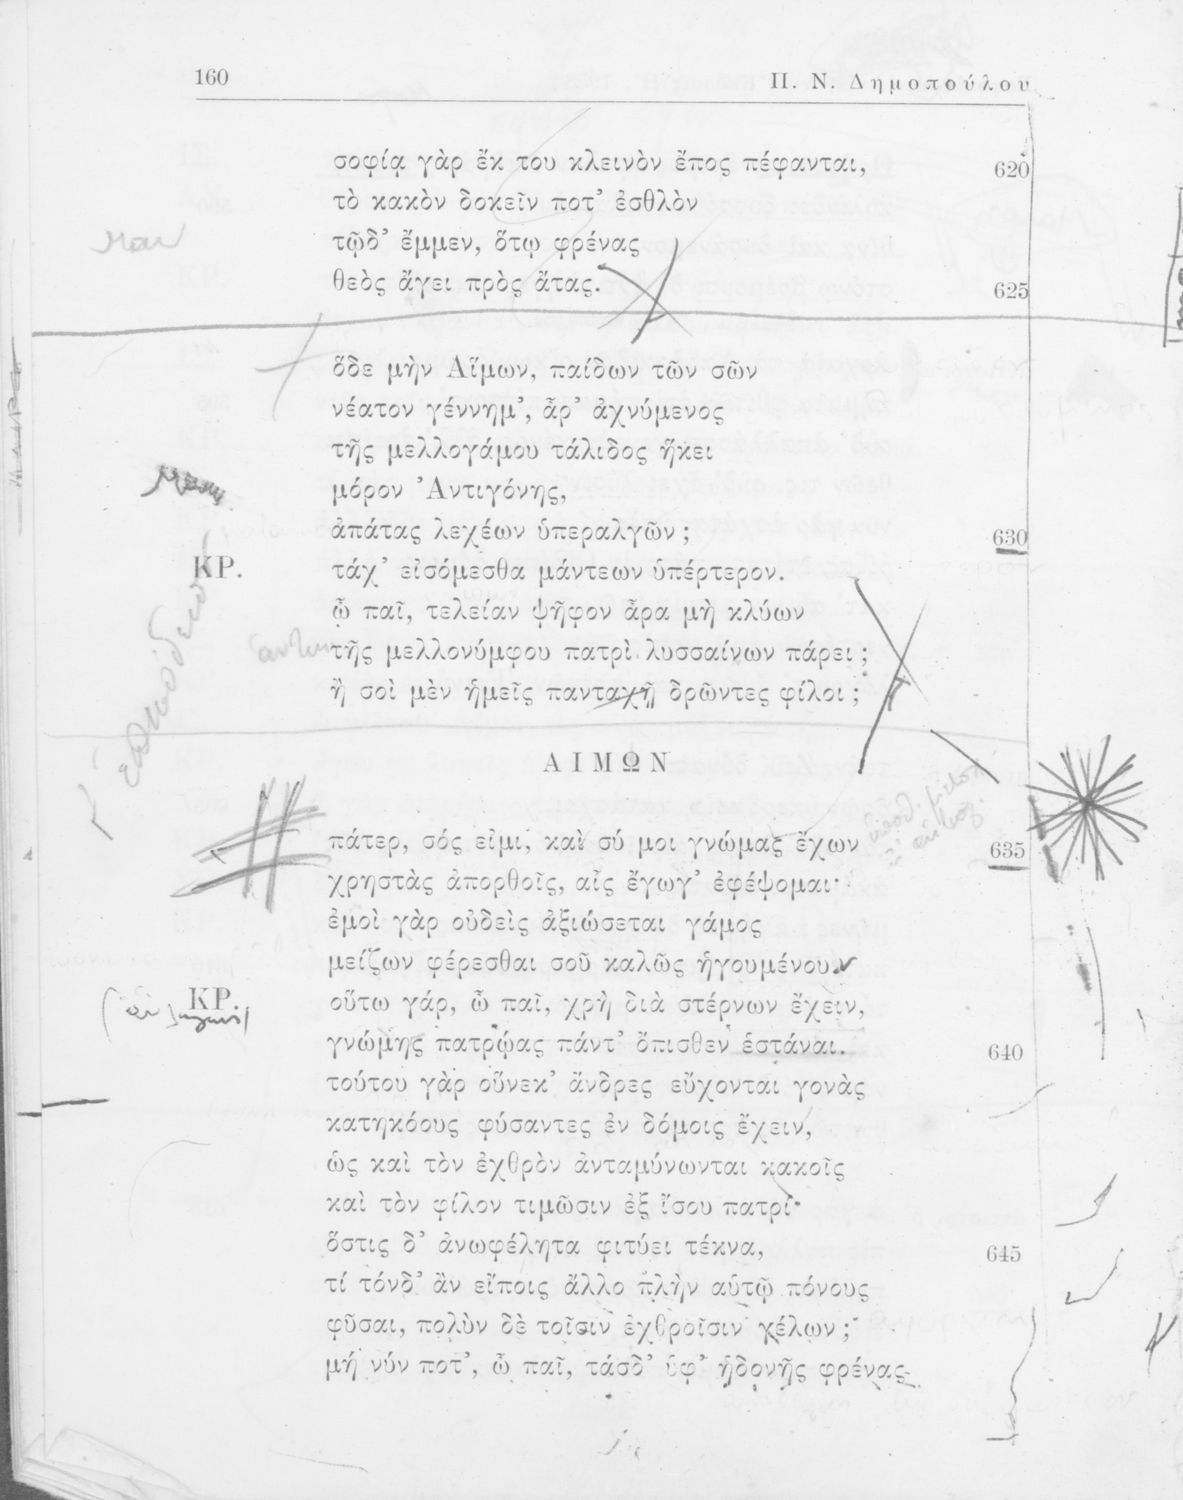 160
Π. Ν. Δημοπούλου
σοφίᾳ γὰρ ἔκ του κλεινὸν ἔπος πέφανται, 620
τὸ κακὸν δοκεῖν ποτ' ἐσθλὸν
τῷδ' ἔμμεν, ὅτῳ φρένας
θεὸς ἄγει πρὸς ἄτας. 625
ὅδε μὴν Αἵμων, παίδων τῶν σῶν
νέατον γέννημ', ἆρ' ἀχνύμενος
τῆς μελλογάμου τάλιδος ἥκει
μόρον Ἀντιγόνης,
ἀπάτας λεχέων ὑπεραλγῶν ; 630
ΚΡ. τάχ' εἰσόμεσθα μάντεων ὑπέρτερον.
ὦ παῖ, τελείαν ψῆφον ἆρα μὴ κλύων
τῆς μελλονύμφου πατρὶ λυσσαίνων πάρει ;
ἢ σοὶ μὲν ἡμεῖς πανταχῇ δρῶντες φίλοι ;
ΑΙΜΩΝ
πάτερ, σός εἰμι, καὶ σύ μοι γνώμας ἔχων 635
χρηστὰς ἀπορθοῖς, αἷς ἔγωγ' ἐφέψομαι·
ἐμοὶ γὰρ οὐδεὶς ἀξιώσεται γάμος
μείζων φέρεσθαι σοῦ καλῶς ἡγουμένου.
ΚΡ. οὕτω γάρ, ὦ παῖ, χρὴ διὰ στέρνων ἔχειν,
γνώμης πατρῴας πάντ' ὄπισθεν ἑστάναι. 640
τούτου γὰρ οὕνεκ' ἄνδρες εὔχονται γονὰς
κατηκόους φύσαντες ἐν δόμοις ἔχειν,
ὡς καὶ τὸν ἐχθρὸν ἀνταμύνωνται κακοῖς
καὶ τὸν φίλον τιμῶσιν ἐξ ἴσου πατρί·
ὅστις δ' ἀνωφέλητα φιτύει τέκνα, 645
τί τόνδ' ἂν εἴποις ἄλλο πλὴν αὑτῷ πόνους
φῦσαι, πολὺν δὲ τοῖσιν ἐχθροῖσιν γέλων ;
μή νύν ποτ', ὦ παῖ, τάσδ' ὑφ' ἡδονῆς φρένας